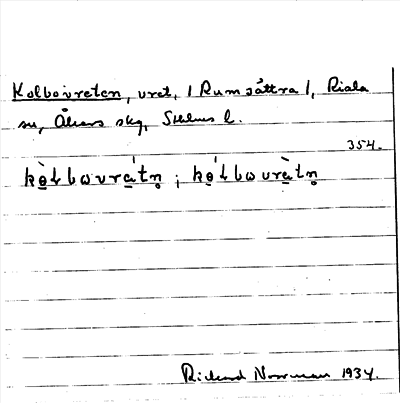 Kolbovreten, vret, / Rumsättra /, Riala
sn, Åkers skg, Sthlms l.
354.
kò̤ɫbωvrá̤tn̥ ; kó̤ɫbωvrà̤tn̥
Rickard Norrman 1934.